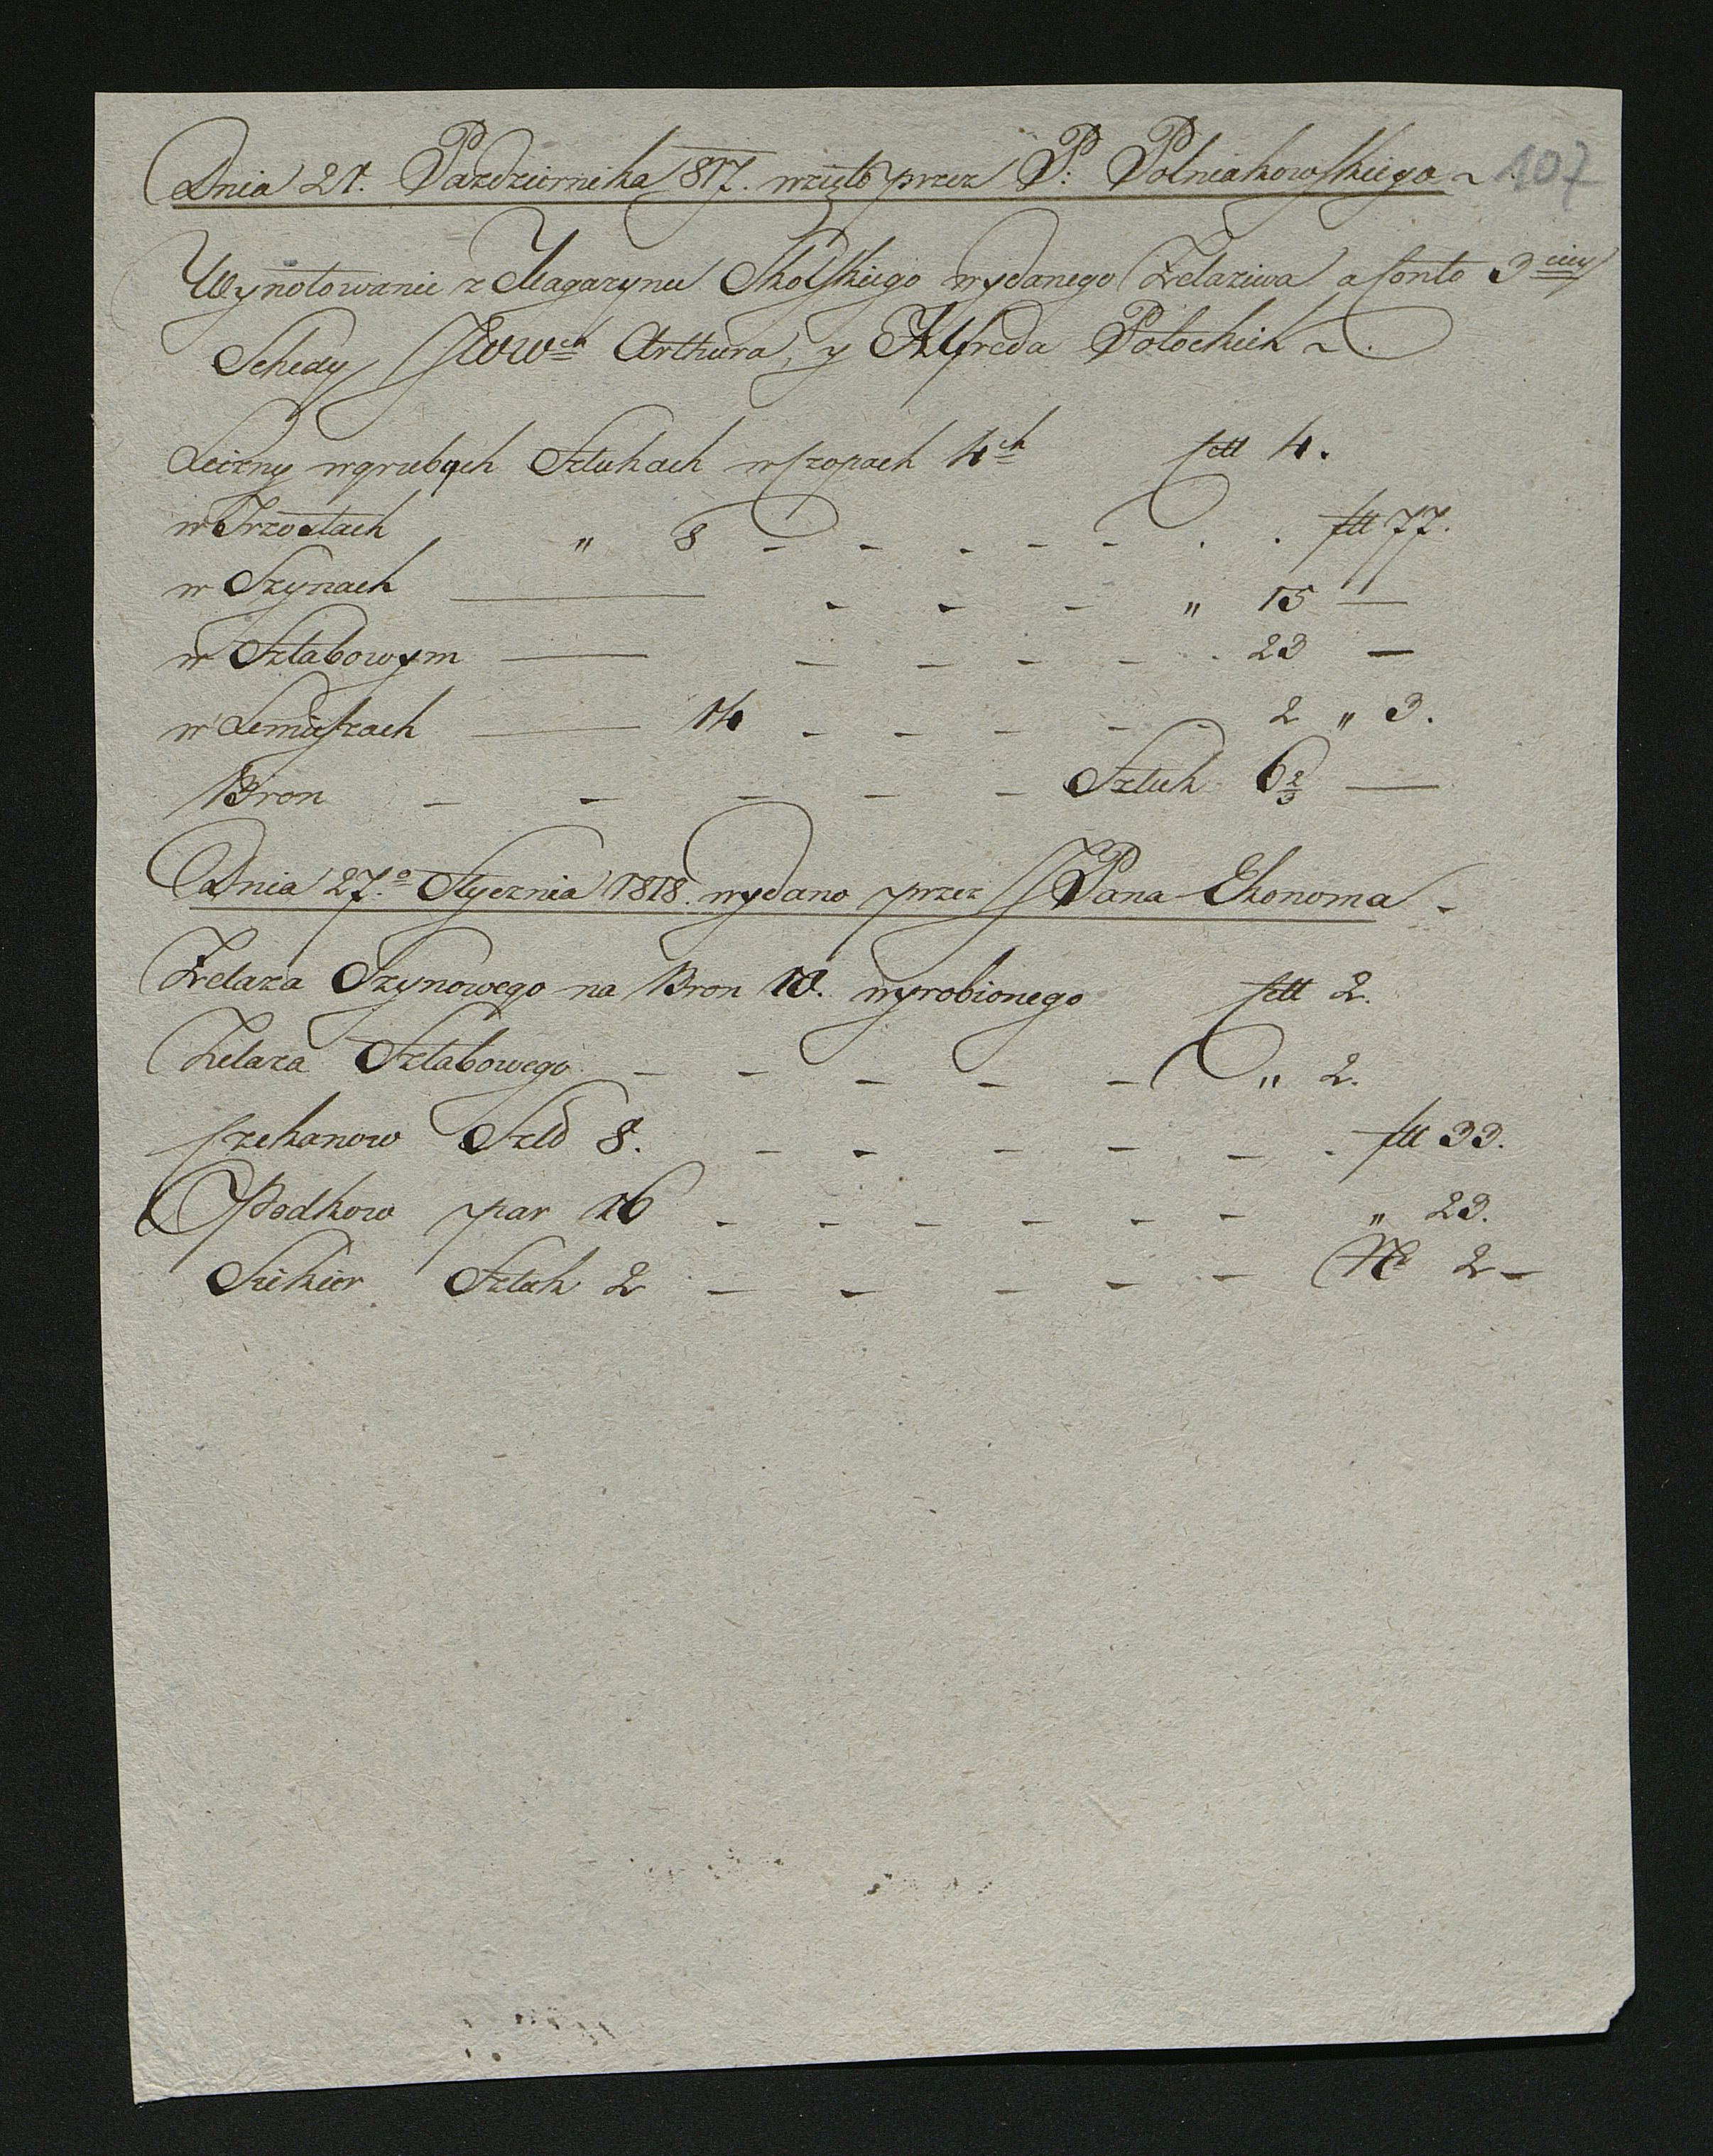 107
Dnia 21. Pazdziernika 817. wzięto przez P. Polniakowskiego ~
Wynotowanie z Magazynu Skolskiego wydanego Żelaziwa a Conto 3ciey
Schedy JWWch Arthura, y Alfreda Potockich ~
w grubych Sztukach w Czopach 4ch 4.
w " 8 - - - - - . . 77.
w Szynach — - - - " 15 —
w Sztabowym — - - - - . 23 —
w Lemiszach — 14 - - - - - 2 " 3.
Bron - - - - - Sztuk 6 2/3 —
Dnia 27.o Stycznia 1818. wydano przez JPana Ekonoma -
Żelaza Szynowego na Bron 10. wyrobionego 2.
Żelaza Sztabowego - - - - - " 2.
Czekanow 8. - - - - - . 33.
Podkow par 16 - - - - - - " 23.
Siekier Sztuk 2 - - - - - No 2 -